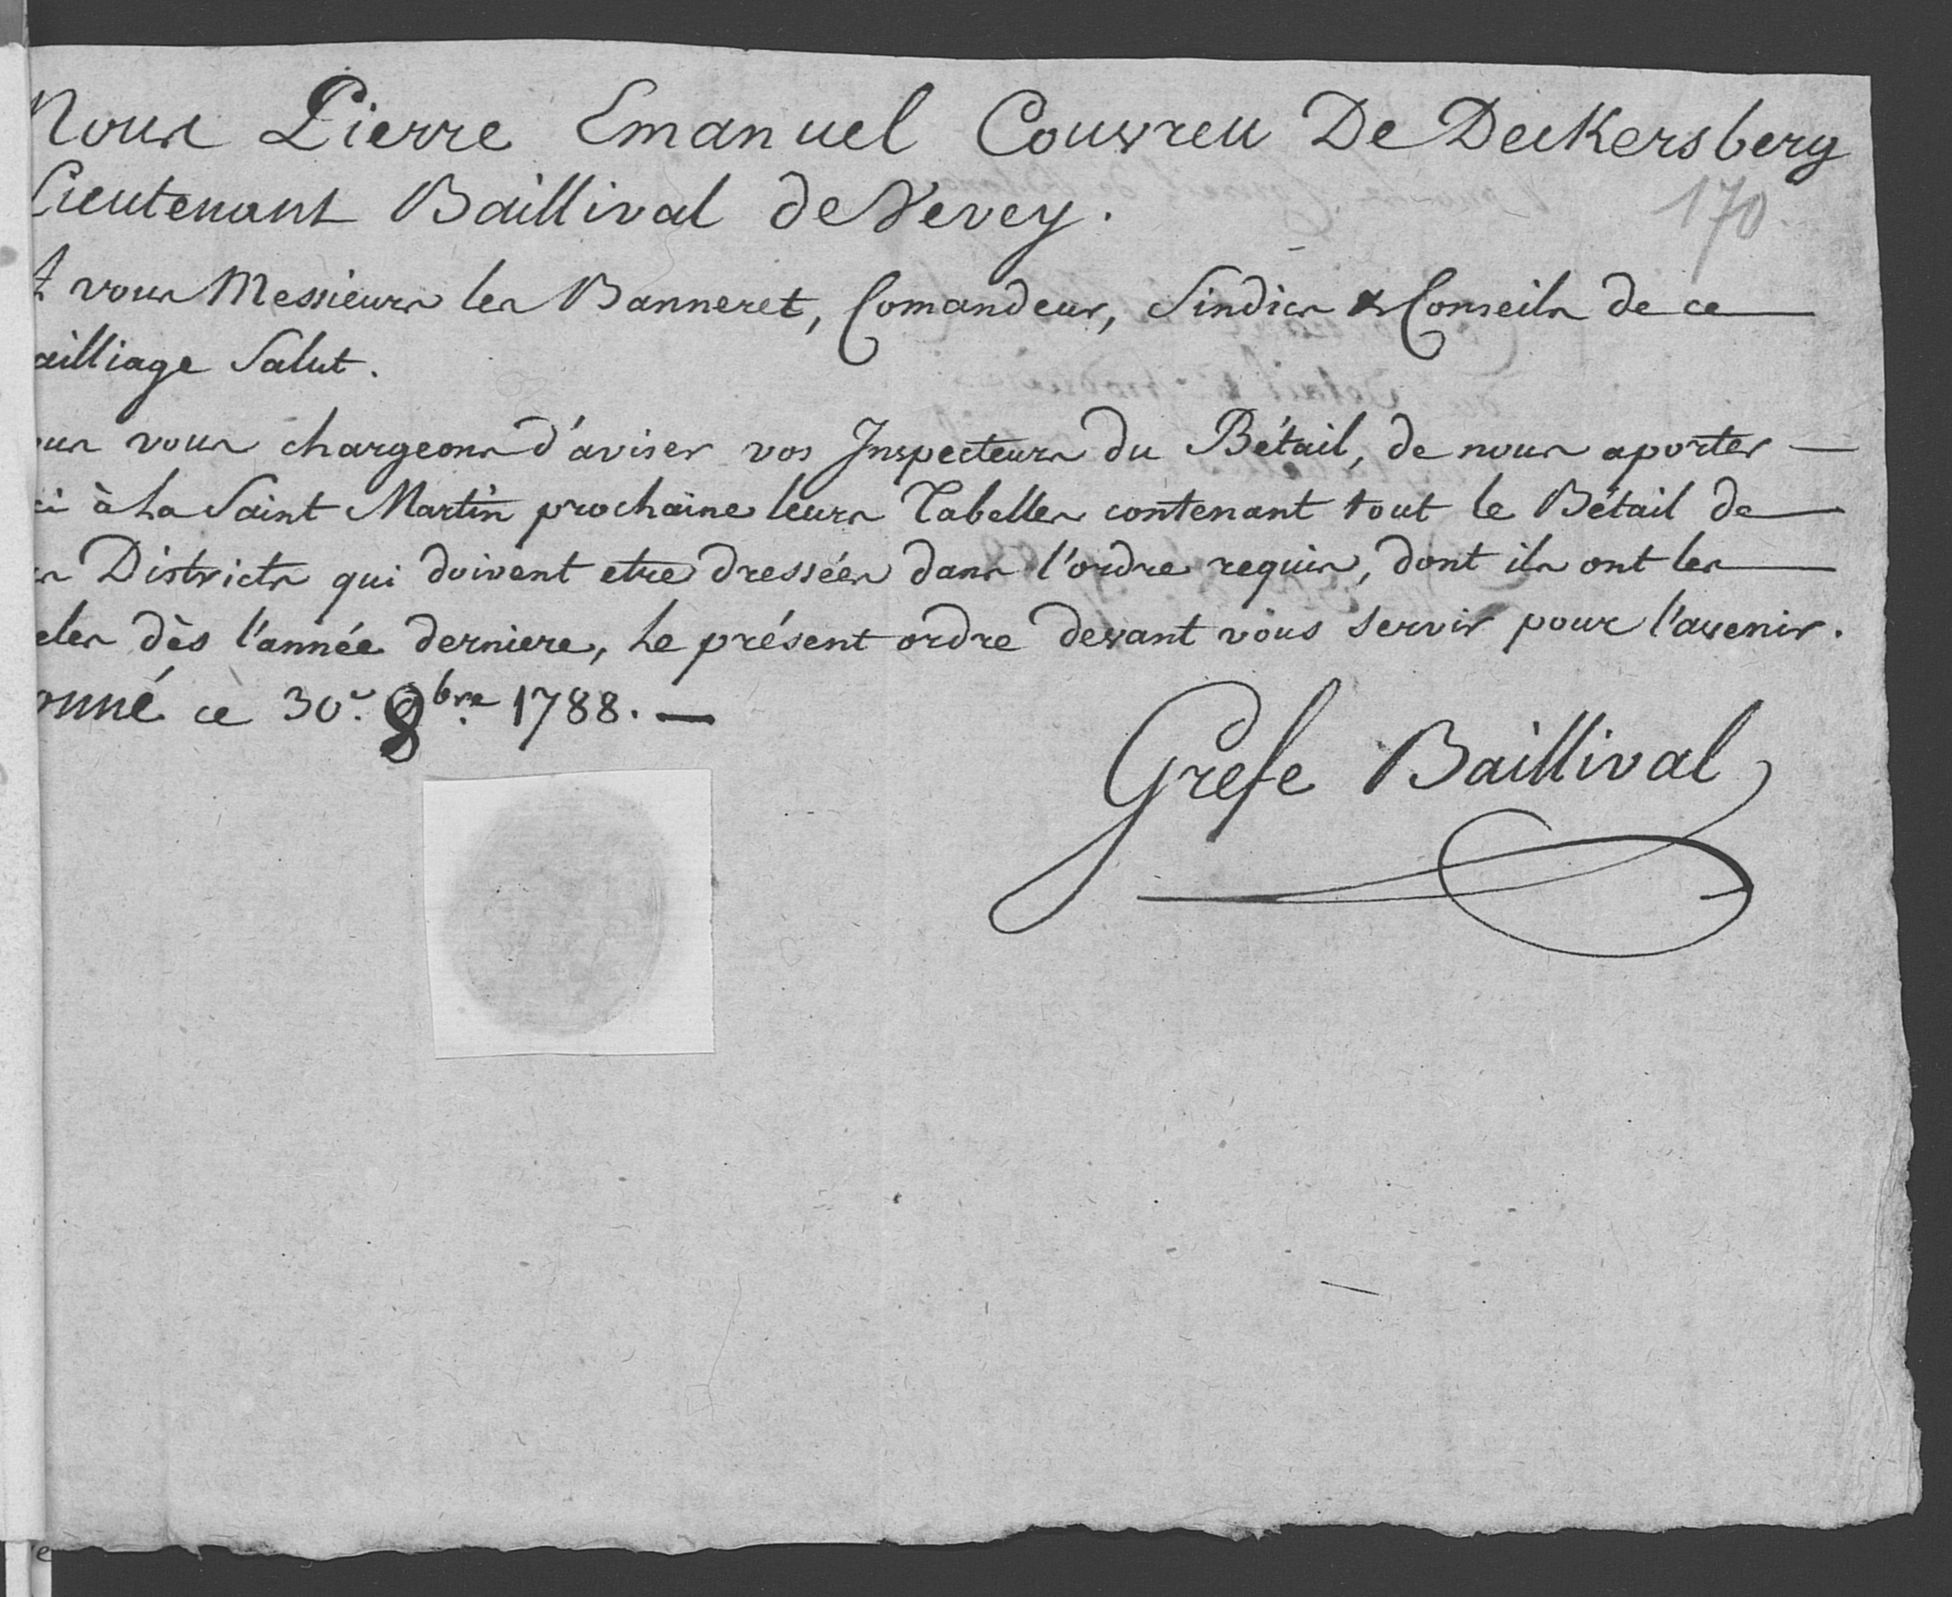 Nous Pierre Emanuel Couvreu De Deckersberg
Lieutenant Baillival de Vevey.
170
A vous Messieurs les Banneret, Comandeur, Sindics & Conseils de ce
ailliage Salut.
ous vous chargeons d'aviser vos Inspecteurs du Bétail, de nous aporter
ci à la Saint Martin prochaine leurs Tabelles contenant tout le Bétail de
rs Districts qui doivent etre dressées dans l'ordre requis, dont ils ont les
eles dès l'année derniere, le présent ordre devant vous servir pour l'avenir.
onné ce 30.e 8bre 1788. —
Grefe Baillival